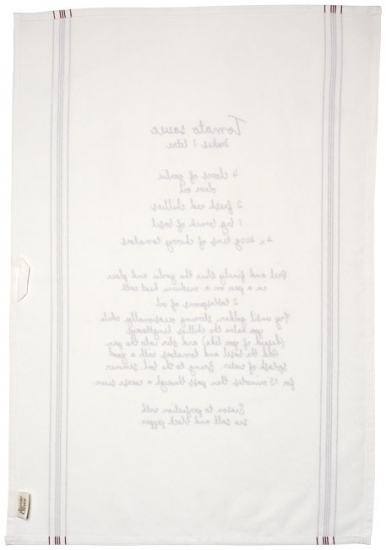 Tomato sauce
makes 1 litre
4 cloves of garlic
olive oil
2 fresh red chillies
1 big bunch of basil
4 x 400g tins of cherry tomatoes
Peel and finely slice the garlic and place
in a pan on a medium heat with
2 tablespoons of oil
Fry until golden, stirring occasionally, while
you halve the chillies lengthways
(deseed if you like) and stir into the pan
Add the basil and tomatoes, with a good
splash of water. Bring to the boil, simmer
for 15 minutes, then pass through a coarse sieve
Season to perfection with
sea salt and black pepper